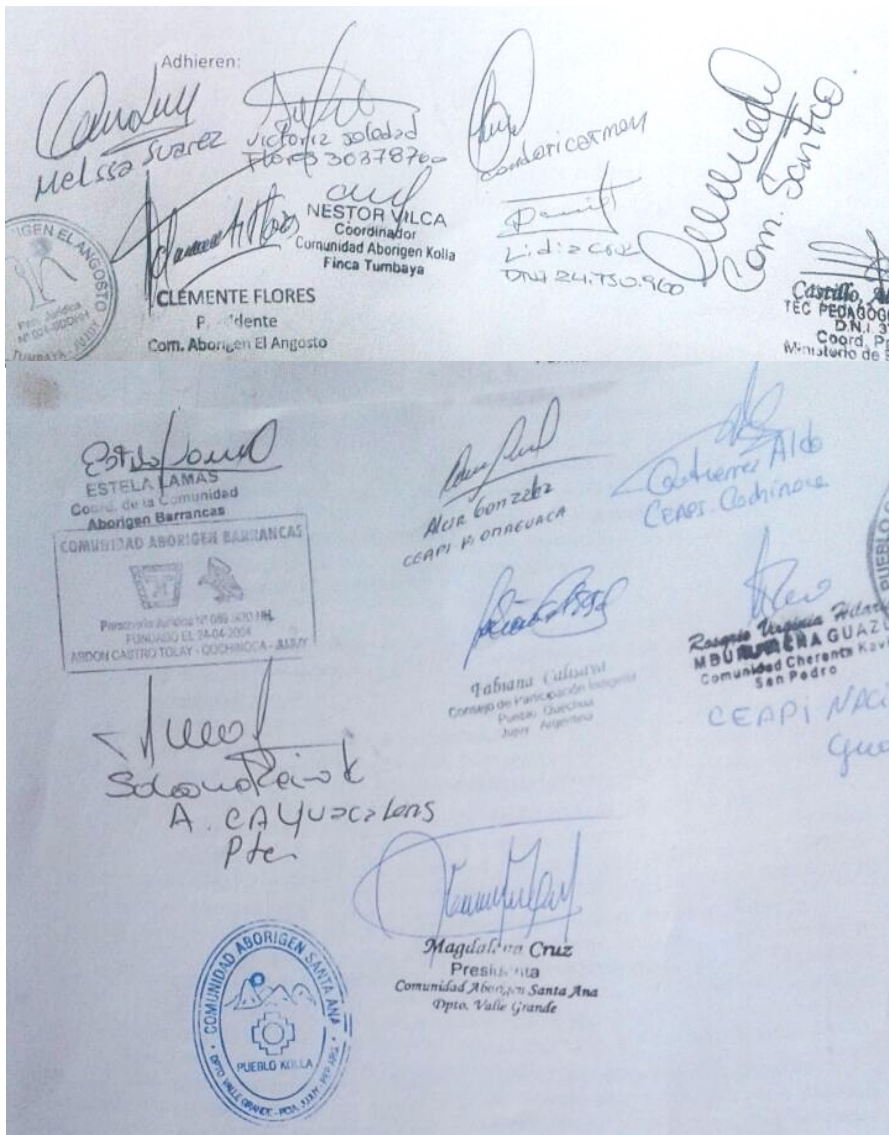 Adhieren:
Melssa Suarez
Victoriz Soledad
Flores 30378760
Condori Carmen
Com. Santco
NESTOR VILCA
Coordinador
Comunidad Aborigen Kolla
Finca Tumbaya
Lidiz Cruz
DNI 24.750.960
IGEN EL ANGOSTO
Pers. Jurídica
TUMBAYA - JUJUY
CLEMENTE FLORES
Com. Aborigen El Angosto
Castillo,
TEC PEDAGOG
D.N.I. 3
Coord. P
Ministerio de
ESTELA LAMAS
Coord. de la Comunidad
Aborigen Barrancas
COMUNIDAD ABORIGEN BARRANCAS
Personería Jurídica Nº
FUNDADO EL 24-04-2004
ABDON CASTRO TOLAY - COCHINOCA - JUJUY
Alcir Gonzalez
CEAPI
Gutierrez Aldo
CEAPI Cochinoca
PUEBLO
Fabiana Calisaya
Consejo de Participación Indígena
Pueblo Quechua
Jujuy Argentina
Rosario Virginia Hilar
GUAZU
Comunidad Cherenta Kavi
San Pedro
CEAPI NACI
Gua
A. CAYUacaLans
Pte.
Magdalena Cruz
Presidenta
Comunidad Aborigen Santa Ana
Dpto. Valle Grande
COMUNIDAD ABORIGEN SANTA ANA
PUEBLO KOLLA
DPTO VALLE GRANDE - PCIA. JUJUY - REP. ARG.